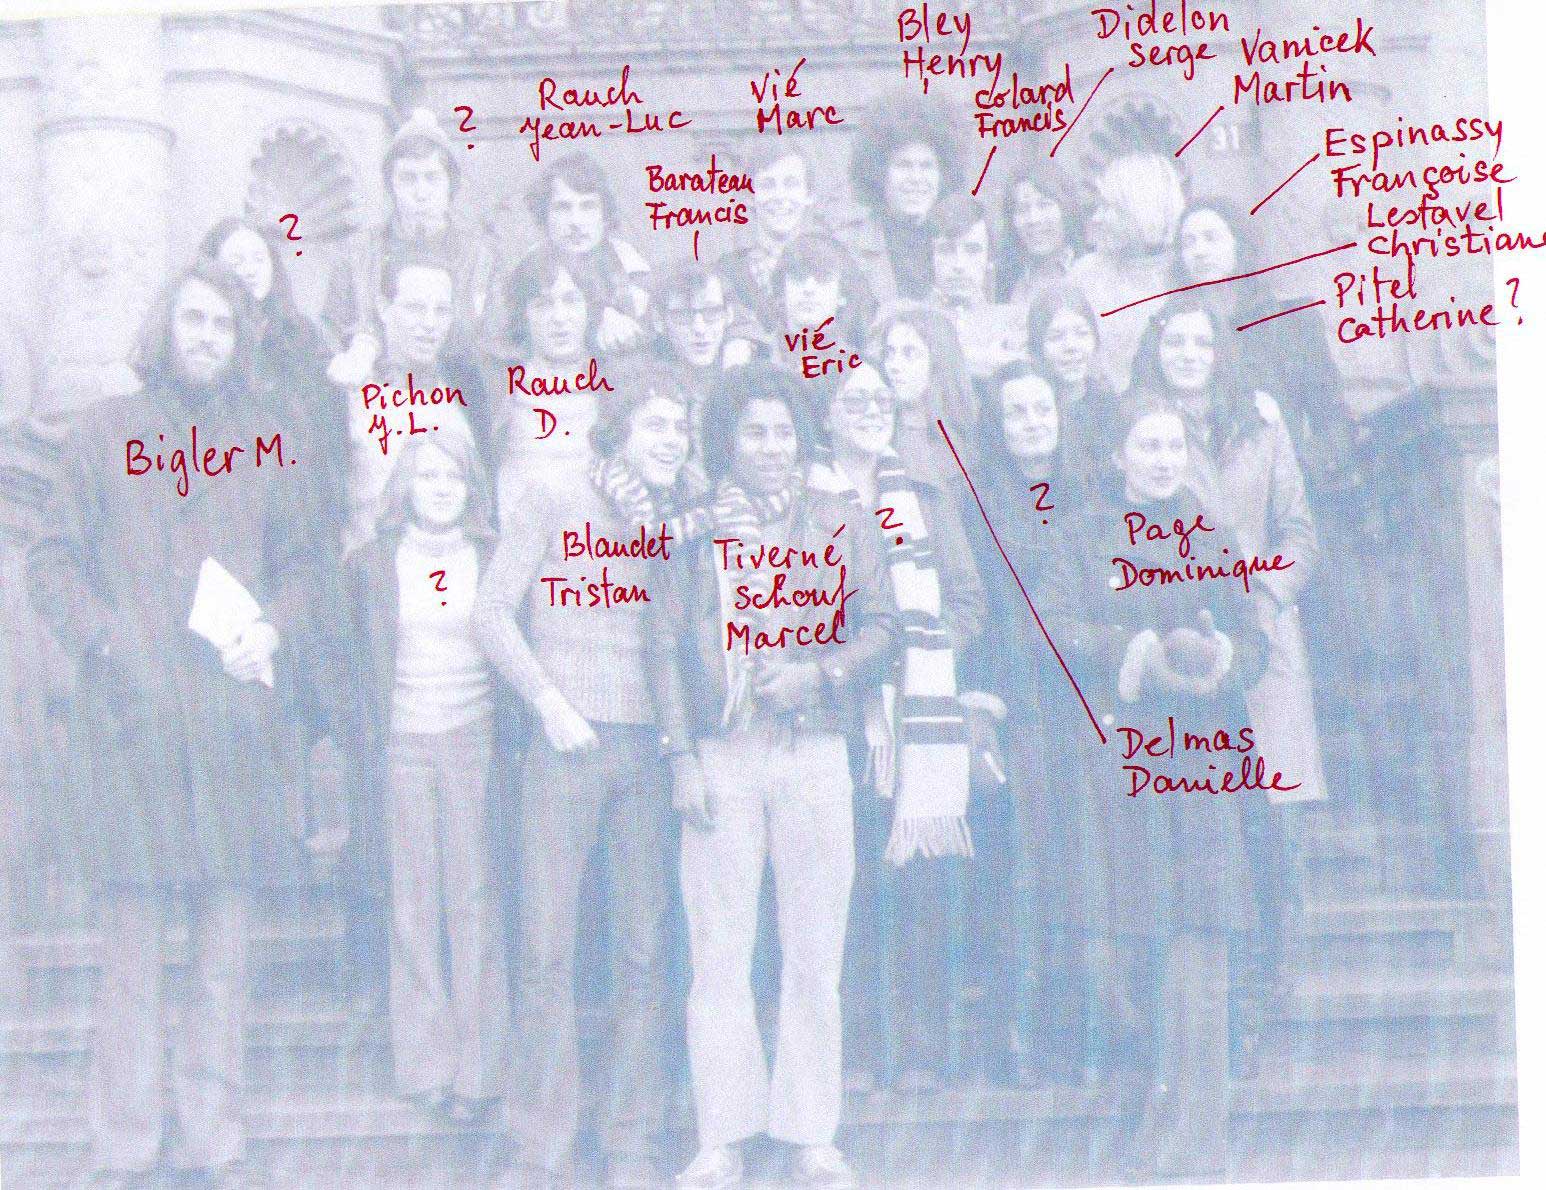 Bley
Henry
Didelon
Serge
Vanicek
Martin
Vié
Marc
Colard
Francis
?
Rauch
Jean-Luc
Espinassy
Françoise
Barateau
Francis
Lestavel
Christiane
?
Pitel
Catherine ?
31
Vié
Eric
Pichon
J.L.
Rauch
D.
Bigler M.
?
?
Page
Dominique
Blaudet
Tristan
Tiverné
Schouf
Marcel
?
Delmas
Danielle